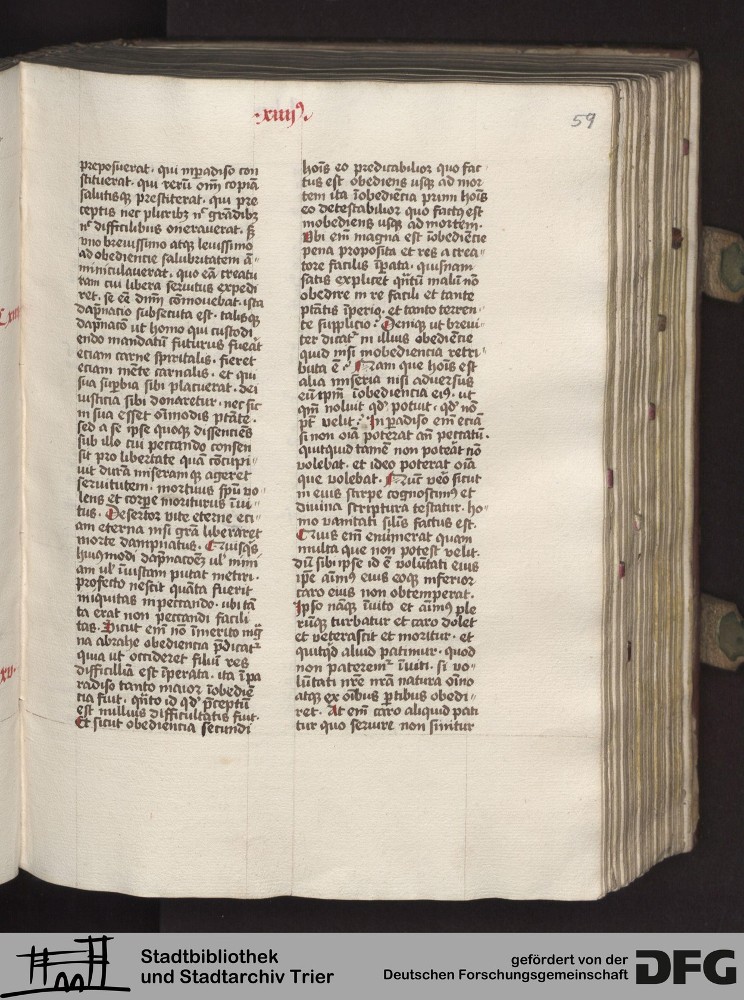 ·xiiij·
59
preposuerat· qui in paradiso con
stituerat· qui rerū om̄i copia
salutisqꝫ prestiterat· qui pre
ceptis nec pluribꝫ nᶜ grādibꝫ
nᶜ difficilibus onerauerat· sꝫ
vno breuissimo atqꝫ leuissimo
ad obediencie salubritatem ā-
miniculauerat· quo eā creatu
ram cui libera seruitus expedi
ret· se eē dn̄m cōmouebat· ista
dāpnatio subsecuta est· talisqꝫ
dāpnacō ut homo qui custodi
endo mandatū futurus fuerat
etiam carne spiritalis· fieret
etiam mēte carnalis· et qui
sua supbia sibi placuerat· dei
iusticia sibi donaretur· nec sic
in sua esset oīmodis ptāte·
sed a se ipse quoqꝫ dissenciēs
sub illo cui peccando consen
sit pro libertate quā cōcupi-
uit durā miseramqꝫ ageret
seruitutem· mortuus spū vo
lens et corpe moriturus īui-
tus· Desertor vite eterne eci-
am eterna nisi grā liberaret
morte dampnatus· Quisqͥs
huiꝰmodi dāpnacōeꝫ ul nimi
am ul īiustam putat metiri·
profecto nescit quāta fuerit
iniquitas in peccando· ubi tā
ta erat non peccandi facili
tas· Sicut em̄ nō īmerito mg̅
na abrahe obediencia p̄dicatᷣ
quia ut occideret filiū res
difficillia est īperata· ita ī pa
radiso tanto maior īobediē
cia fuit· qn̄to id qd̕ p̄ceptū
est nullius difficultatis fuit·
Et sicut obediencia secundi
hoīs eo predicabilior quo fac
tus est obediens usqꝫ ad mor
tem ita īobediēcia primi hoīs
eo detestabilior quo factꝰ est
inobediens usqꝫ ad mortem·
Vbi em̄ magna est īobediēcie
pena proposita et res a crea-
tore facilis īpata· quisnam
satis explicet qn̄tū malū nō
obedire in re facili et tante
ptātis īperio· et tanto terren-
te supplicio· Deniqꝫ ut breui-
ter dicatᷣ in illius obediēcie
quid nisi inobediencia retri-
buta ē· Nam que hoīs est
alia miseria nisi aduersus
eū ipm̄ īobediencia eiꝰ· ut
qm̄ noluit qd̕ potuit· qd̕ nō
pt̄ velit· In padiso em̄ eciā
si non oīa poterat an̄ peccatū·
quitquid tamē non poterat nō
volebat· et ideo poterat oīa
que volebat· Nunc vēo sicut
in eius stirpe cognoscim̄ꝰ et
diuina scriptura testatur· ho-
mo vanitati silīs factus est·
Quis em̄ enumerat quam
multa que non potest velit·
dū sibi ipse id ē volūtati eius
ip̄e aīmꝰ eius eoqꝫ inferior
caro eius non obtemperat·
Ipso nāqꝫ īuito et aīmꝰ ple
rūqꝫ turbatur et caro dolet
et veterascit et moritur· et
quitqͥd aliud patimur· quod
non pateremᷣ īuiti· si vo-
lūtati nr̄e nr̄a natura oīno
atqꝫ ex oībus ꝑtibus obedi-
ret· At em̄ caro aliquid pati
tur quo seruire non sinitur
Stadtbibliothek
und Stadtarchiv Trier
gefördert von der
Deutschen Forschungsgemeinschaft
DFG